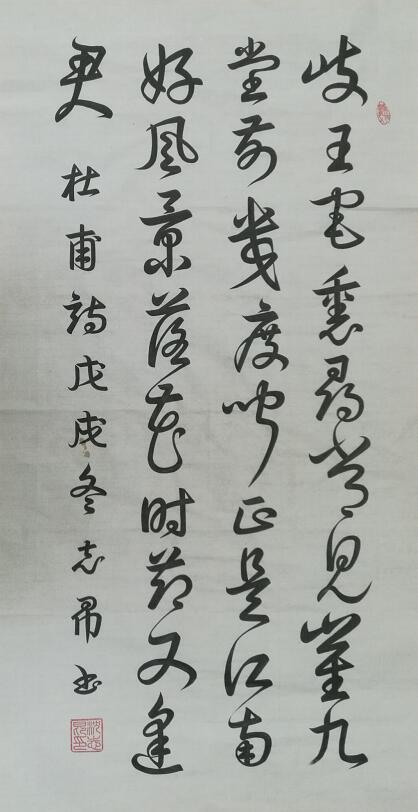 岐王宅裏尋常見崔九
堂前幾度聞正是江南
好風景落花时節又逢
君 杜甫詩戊戌冬志書